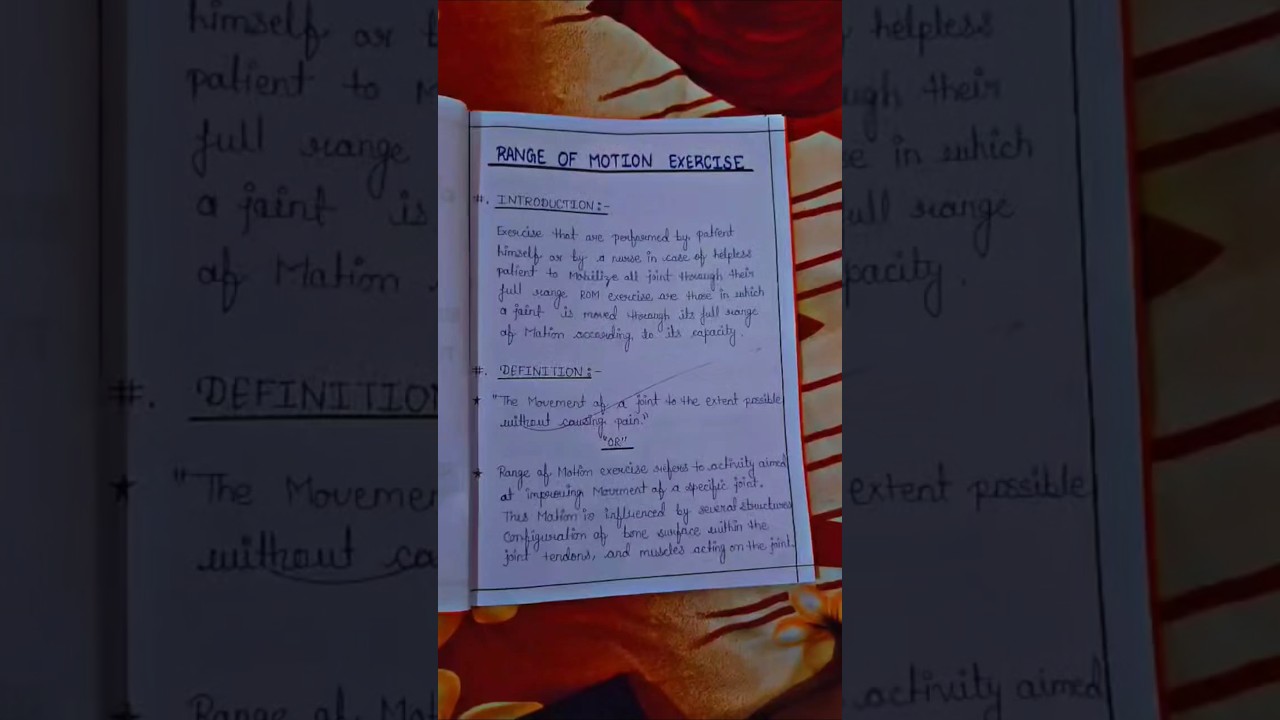 RANGE OF MOTION EXERCISE
#. INTRODUCTION:-
Exercise that are performed by patient
himself or by a nurse in case of helpless
patient to Mobilize all joint through their
full range ROM exercise are those in which
a joint is moved through its full range
of Motion according to its capacity.
#. DEFINITION:-
★ "The Movement of a joint to the extent possible
without causing pain."
"OR"
★ Range of Motion exercise refers to activity aimed
at improving Movement of a specific joint.
This Motion is influenced by several structures
Configuration of bone surface within the
joint tendons, and muscles acting on the joint.